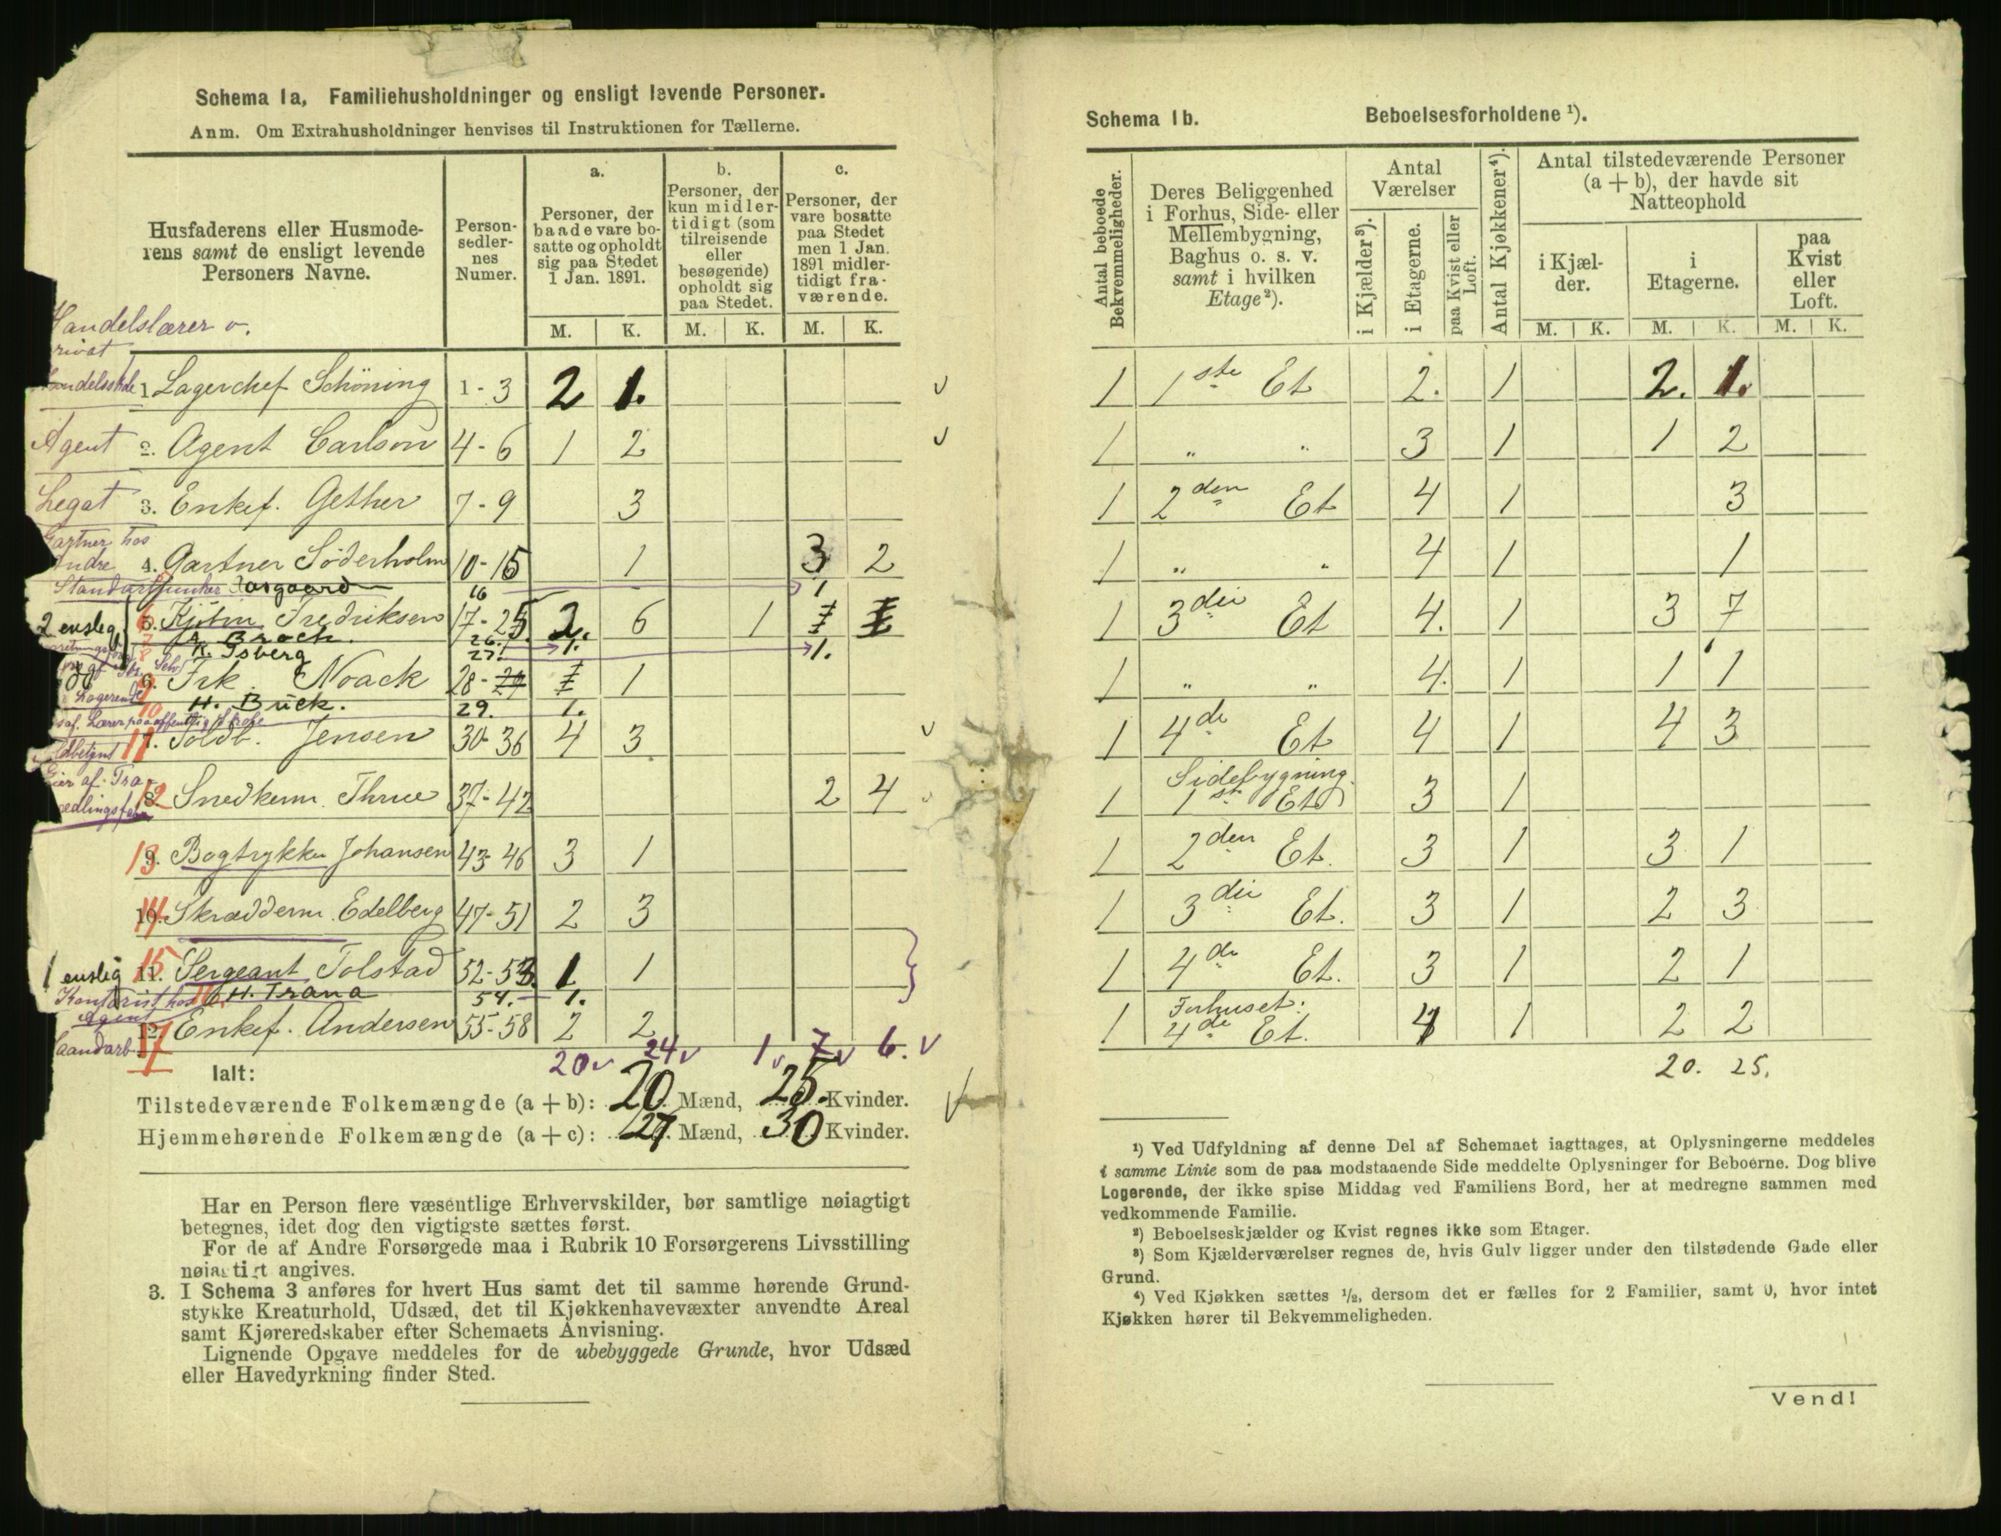 Schema 1a, Familiehusholdninger og ensligt levende Personer.
Anm. Om Extrahusholdninger henvises til Instruktionen for Tællerne.
Husfaderens eller Husmoderens samt de ensligt levende Personers Navne.
Personsedlernes Numer.
a. Personer, der baade vare bosatte og opholdt sig paa Stedet 1 Jan. 1891.
b. Personer, der kun midlertidigt (som tilreisende eller besøgende) opholdt sig paa Stedet.
c. Personer, der vare bosatte paa Stedet men 1 Jan. 1891 midlertidigt fraværende.
M. K. M. K. M. K.
Handelslærer v.
1. Lagerchef Schöning 1-3 2 1.
Agent 2. Agent Carlson 4-6 1 2
Legat 3. Enkef. Gether 7-9 3
Gartner hos Andre 4. Gartner Söderholm 10-15 1 3 2
Aasgaard 16 1
2 enslig 5. Fredriksen 17-25 2. 6 1
A. Broch. 26. 1.
K. Isberg 27. 1.
6. Frk. Noack 28 1
Logerende H. Bück. 29. 1.
11 7. Toldb. Jensen 30-36 4 3
12 8. Snedkerm. Thrue 37-42 2 4
13 9. Bogtrykker Johansen 43-46 3 1
14 10. Skrædderm. Edelberg 47-51 2 3
1 enslig 15 11. Sergeant Tolstad 52-53. 1. 1
Kontorist hos Agent H. Trana 54. 1.
17 12. Enkef. Andersen 55-58 2 2
20 v 24 v 1 v 7 v 6. v
Ialt:
Tilstedeværende Folkemængde (a + b): 20 Mænd, 25. Kvinder.
Hjemmehørende Folkemængde (a + c): 27 Mænd, 30 Kvinder.
Har en Person flere væsentlige Erhvervskilder, bør samtlige nøiagtigt
betegnes, idet dog den vigtigste sættes først.
For de af Andre Forsørgede maa i Rubrik 10 Forsørgerens Livsstilling
nøiagtigt angives.
3. I Schema 3 anføres for hvert Hus samt det til samme hørende Grund-
stykke Kreaturhold, Udsæd, det til Kjøkkenhavevæxter anvendte Areal
samt Kjøreredskaber efter Schemaets Anvisning.
Lignende Opgave meddeles for de ubebyggede Grunde, hvor Udsæd
eller Havedyrkning finder Sted.
Schema 1b. Beboelsesforholdene ¹).
Antal beboede Bekvemmeligheder.
Deres Beliggenhed i Forhus, Side- eller Mellembygning, Baghus o. s. v. samt i hvilken Etage²).
Antal Værelser
i Kjælder³).
i Etagerne.
paa Kvist eller Loft.
Antal Kjøkkener⁴).
Antal tilstedeværende Personer (a + b), der havde sit Natteophold
i Kjælder. i Etagerne. paa Kvist eller Loft.
M. K. M. K. M. K.
1 1ste Et 2. 1 2. 1.
1 " " 3 1 1 2
1 2den Et 4 1 3
1 " " 4 1 1
1 3die Et 4. 1 3 7
1 " " 4. 1 1 1
1 4de Et 4 1 4 3
Sidebygning.
1 1st Et 3 1
1 2den Et. 3 1 3 1
1 3die Et. 3 1 2 3
1 4de Et. 3 1 2 1
Forhuset:
1 4de Et. 4 1 2 2
20. 25.
¹) Ved Udfyldning af denne Del af Schemaet iagttages, at Oplysningerne meddeles
i samme Linie som de paa modstaaende Side meddelte Oplysninger for Beboerne. Dog blive
Logerende, der ikke spise Middag ved Familiens Bord, her at medregne sammen med
vedkommende Familie.
²) Beboelseskjælder og Kvist regnes ikke som Etager.
³) Som Kjælderværelser regnes de, hvis Gulv ligger under den tilstødende Gade eller
Grund.
⁴) Ved Kjøkken sættes ½, dersom det er fælles for 2 Familier, samt 0, hvor intet
Kjøkken hører til Bekvemmeligheden.
Vend!